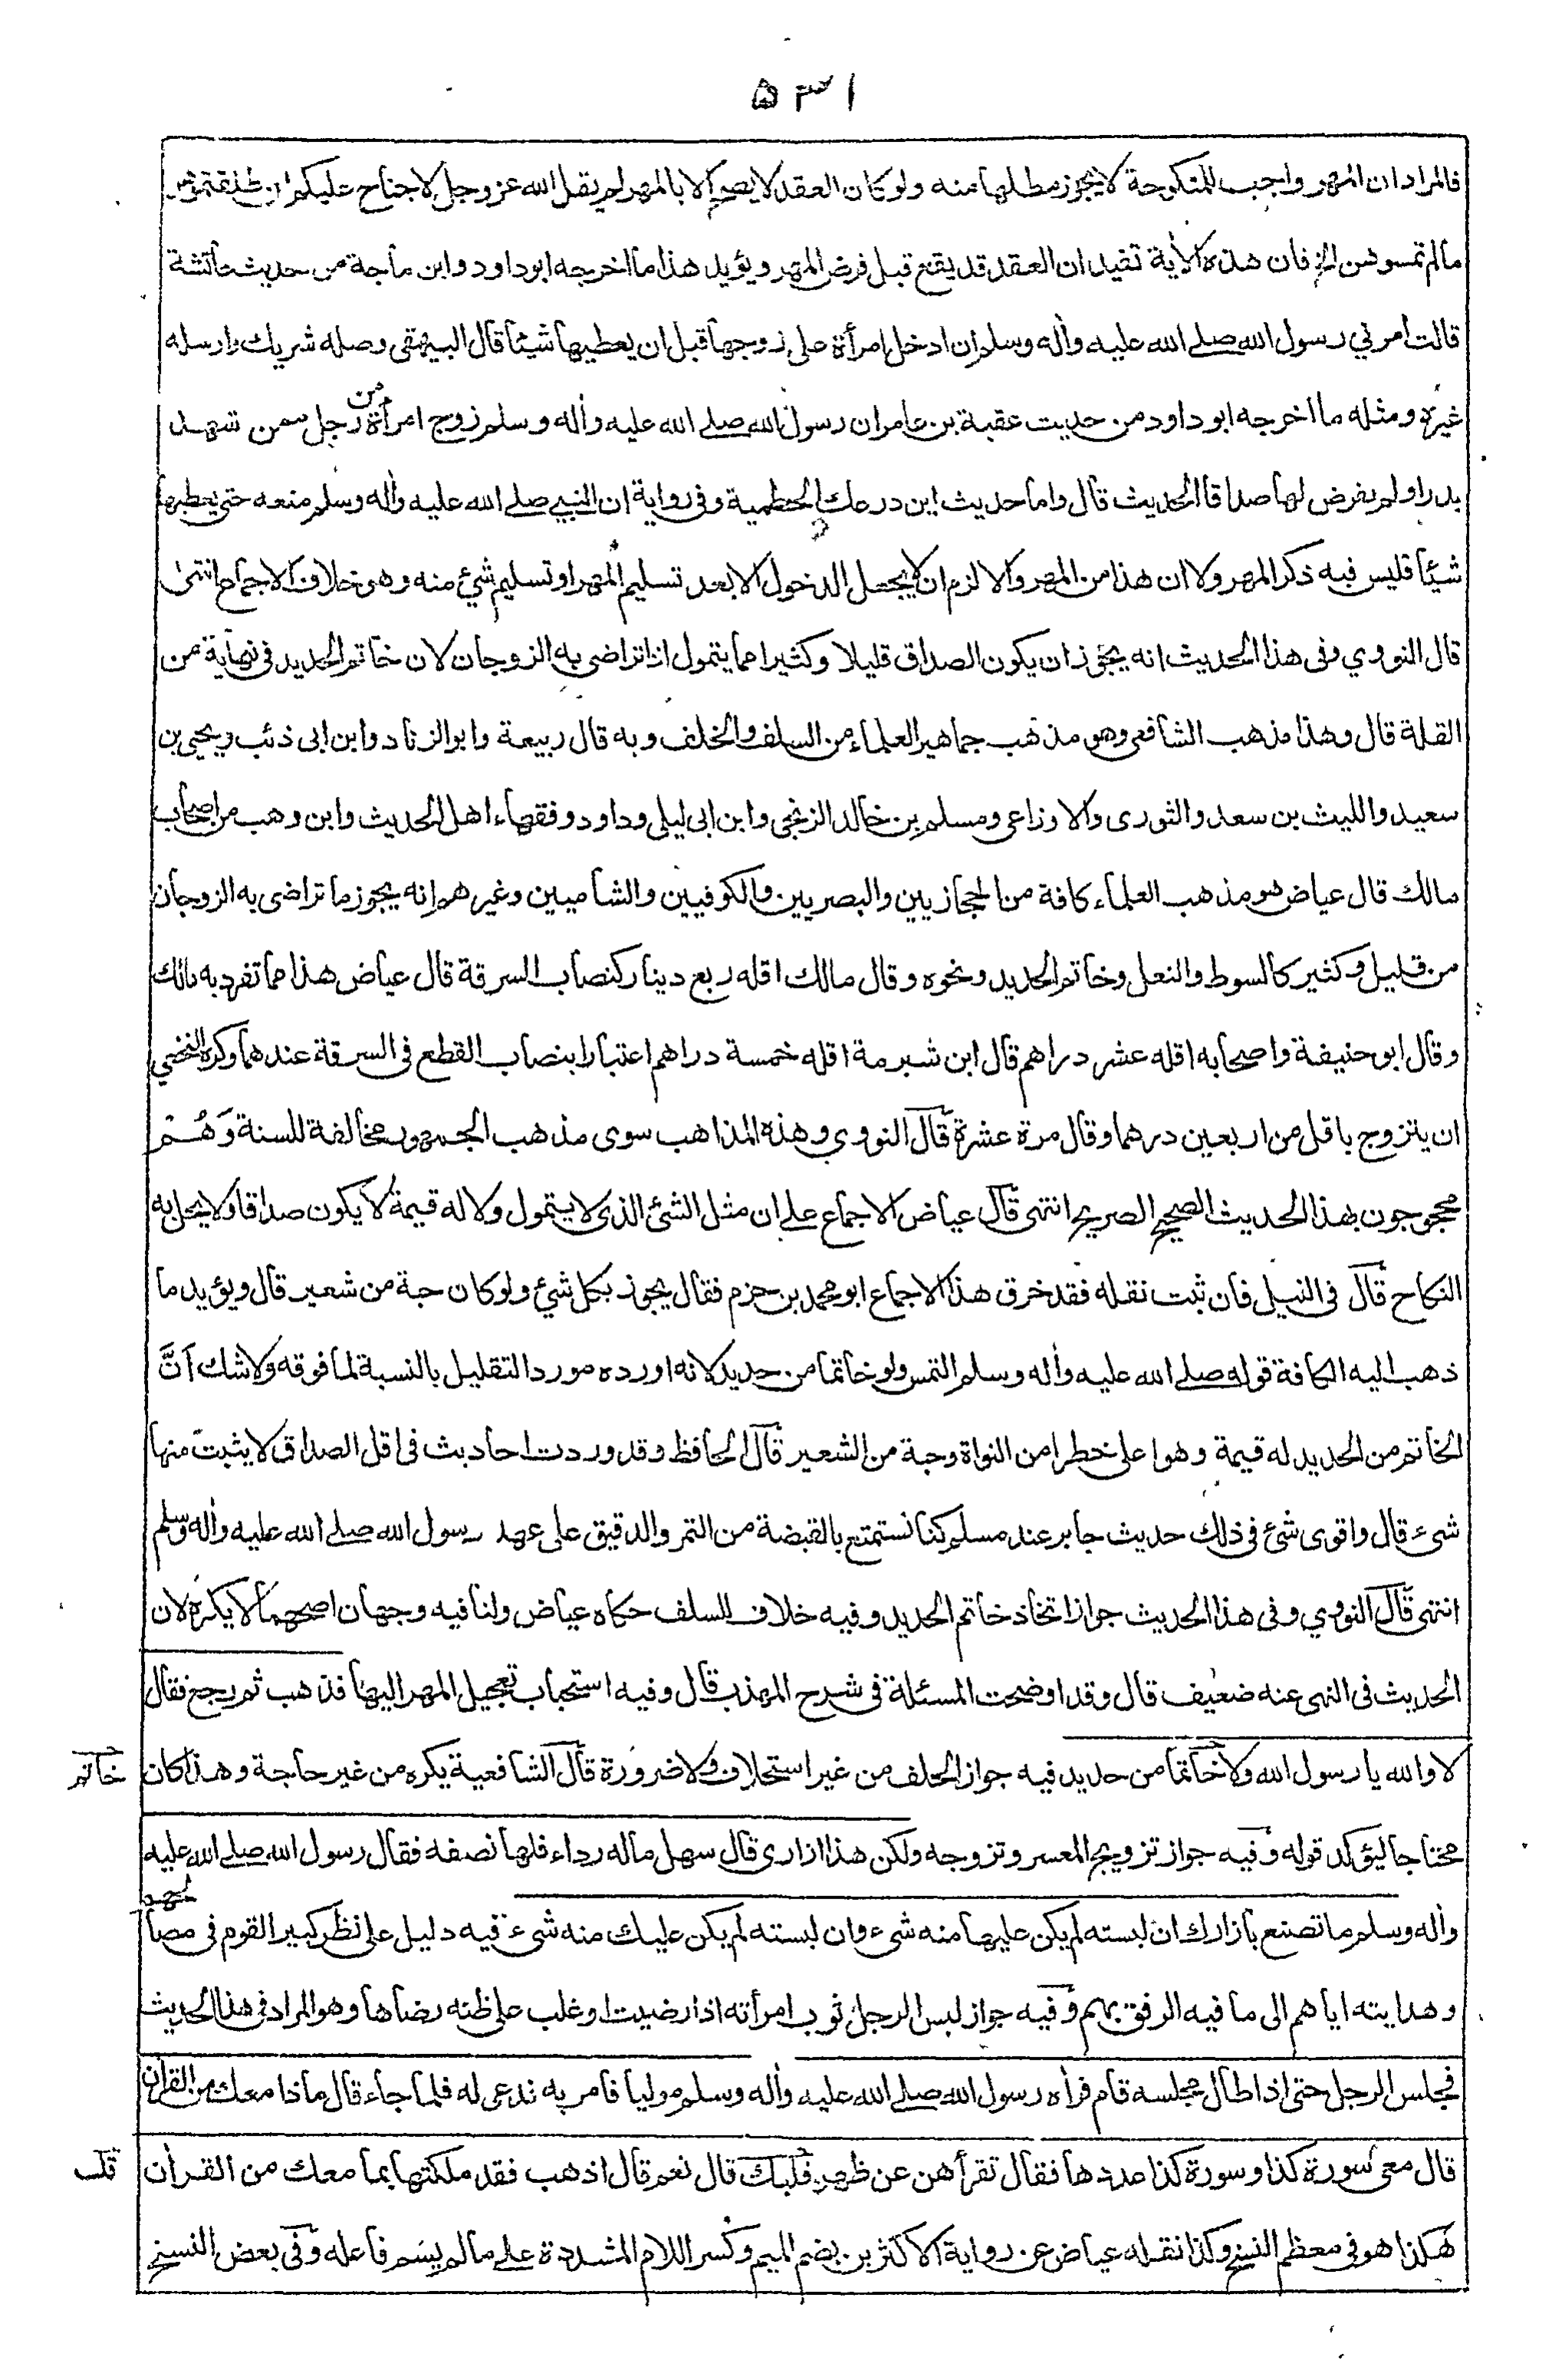 ۵۳۱
فالمراد ان المهر واجب للمنكوحة لا يجوز مطلها منه ولو كان العقد لا يصح الا بالمهر لم يقل الله عز وجل لا جناح عليكم ان طلقتم النساء
مالم تمسوهن الخ فان هذه الأية تفيد ان العقد قد يقع قبل فرض المهر ويؤيد هذا ما اخرجه ابو داود وابن ماجة من حديث عائشة
قالت امرني رسول الله صلے الله عليه وأله وسلم ان ادخل امرأة على زوجها قبل ان يعطيها شيئا قال البيهقى وصله شريك وارسله
غيره ومثله ما اخرجه ابو داود من حديث عقبة بن عامر ان رسول الله صلے الله عليه وأله وسلم زوج امرأة من رجل ممن شهد
بدرا ولم يفرض لها صداقا الحديث قال واما حديث اين درعك الحطمية وفى رواية ان النبي صلے الله عليه وأله وسلم منعه حتى يعطيها
شيئا فليس فيه ذكر المهر ولا ان هذا من المهر والا لزم ان لا يجعل الدخول الا بعد تسليم المهر او تسليم شيء منه وهى خلاف الاجماع انتهى
قال النووي وفى هذا الحديث انه يجوز ان يكون الصداق قليلا وكثيرا مما يتمول اذا تراضى به الزوجان لان خاتم الحديد فى نهاية من
القلة قال وهذا مذهب الشافعى وهو مذهب جماهير العلماء من السلف والخلف وبه قال ربيعة وابو الزناد وابن ابى ذئب ويحيى بن
سعيد والليث بن سعد والثورى والاوزاعى ومسلم بن خالد الزنجى وابن ابى ليلى وداود وفقهاء اهل الحديث وابن وهب من اصحاب
مالك قال عياض هو مذهب العلماء كافة من الحجازيين والبصريين والكوفيين والشاميين وغيرهم انه يجوز ما تراضى به الزوجان
من قليل وكثير كالسوط والنعل وخاتم الحديد ونحوه وقال مالك اقله ربع دينار كنصاب السرقة قال عياض هذا مما تفرد به مالك
وقال ابو حنيفة واصحابه اقله عشر دراهم قال ابن شبرمة اقله خمسة دراهم اعتبارا بنصاب القطع فى السرقة عندهما وكره النخعي
ان يتزوج باقل من اربعين درهما وقال مرة عشرة قال النووي وهذه المذاهب سوى مذهب الجمهور مخالفة للسنة وَهُمْ
محجوجون بهذا الحديث الصحيح الصريح انتهى قال عياض الاجماع على ان مثل الشئ الذى لا يتمول ولا له قيمة لا يكون صداقا ولا يحل به
النكاح قال فى النيل فان ثبت نقله فقد خرق هذا الاجماع ابو محمد بن حزم فقال يجوز بكل شيء ولو كان حبة من شعير قال ويؤيد ما
ذهب اليه الكافة قوله صلے الله عليه وأله وسلم التمس ولو خاتما من حديد لانه اورده مورد التقليل بالنسبة لما فوقه ولا شك اَنَّ
الخاتم من الحديد له قيمة وهو اعلى خطرا من النواة وحبة من الشعير قال الحافظ وقد وردت احاديث فى اقل الصداق لا يثبت منها
شىء قال واقوى شئ فى ذلك حديث جابر عند مسلم كنا نستمتع بالقبضة من التمر والدقيق على عهد رسول الله صلے الله عليه وأله وسلم
انتهى قال النووي وفى هذا الحديث جواز اتخاذ خاتم الحديد وفيه خلاف للسلف حكاه عياض ولنا فيه وجهان اصحهما لا يكره لان
الحديث فى النهى عنه ضعيف قال وقد اوضحت المسئلة فى شرح المهذب قال وفيه استحباب تعجيل المهر اليها فذهب ثم رجع فقال
لا والله يا رسول الله ولا خاتما من حديد فيه جواز الحلف من غير استحلاف ولا ضرورة قال الشافعية يكره من غير حاجة وهذا كان
خاتم
محتاجا ليؤكد قوله وفيه جواز تزويج المعسر وتزوجه ولكن هذا ازارى قال سهل ماله رداء فلها نصفه فقال رسول الله صلے الله عليه
وأله وسلم ما تصنع بازارك ان لبسته لم يكن عليها منه شىء وان لبسته لم يكن عليك منه شىء فيه دليل على نظر كبير القوم فى مصالحهم
وهدايته اياهم الى ما فيه الرفق بهم وفيه جواز لبس الرجل ثوب امرأته اذا رضيت او غلب على ظنه رضاها وهو المراد فى هذا الحديث
فجلس الرجل حتى اذا طال مجلسه قام فرأه رسول الله صلے الله عليه وأله وسلم موليا فامر به فدعى له فلما جاء قال ماذا معك من القرأن
قال معى سورة كذا وسورة كذا عددها فقال تقرأهن عن ظهر قلبك قال نعم قال اذهب فقد ملكتها بما معك من القرأن
قلب
هكذا هو فى معظم النسخ وكذا نقله عياض عن رواية الاكثرين بضم الميم وكسر اللام المشددة على مالم يسم فاعله وفى بعض النسخ